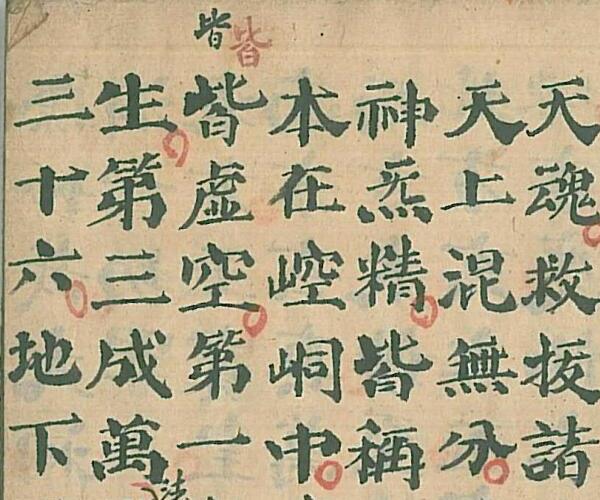 天魂救拔諸
天上混無分
神炁精皆稱
本在崆峒中
皆皆
皆虚空第一
生第三成萬
三十六地下